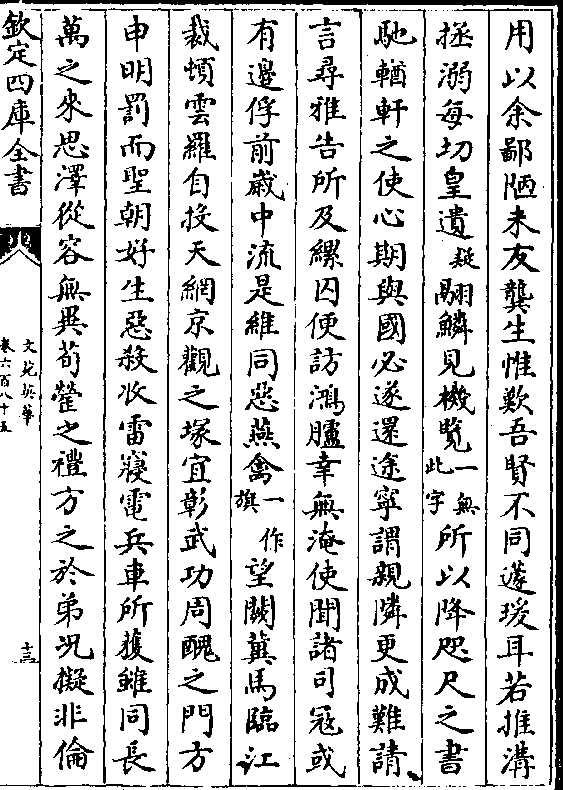 用以余鄙陋未友龔生惟歎吾賢不同蘧瑗耳若推溝
拯溺每切皇遺疑翾鱗見機覽一無此字所以降咫尺之書
馳輶軒之使心期與國必遂還途寧謂親隣更成難請
言尋雅告所及縲囚便訪鴻臚幸無淹使聞諸司冦或
有邊俘前歳中流是維同惡燕禽一作旗望闕冀馬臨江
裁頓雲羅自投天網京觀之塚宜彰武功周醜之門方
申明罰而聖朝好生惡殺收雷寢電兵車所獲雖同長
萬之來恩澤從容無異荀罃之禮方之於弟況擬非倫
欽定四庫全書
文苑英華
卷六百八十五
十三